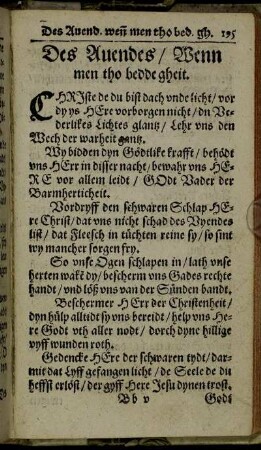 Des Auend. weñ men tho bed. gh. 195
Des Auendes / Wenn
men tho bedde gheit.
CHRJste de du bist dach vnde licht / vor
dy ys HErr vorborgen nicht / du Ve-
derlikes Lichtes glantz / Lehr vns den
Wech der warheit gantz.
Wy bidden dyn Gödtlike krafft / behödt
vns HErr in disser nacht / bewahr vns HE-
RE vor allem leidt / GOdt Vader der
Barmherticheit.
Vordryff den schwaren Schlap HE-
re Christ / dat vns nicht schad des Vyendes
list / dat Fleesch in tüchten reine sy / so sint
wy mancher sorgen fry.
So vnse Ogen schlapen in / lath vnse
herten wakē dy / bescherm vns Gades rechte
handt / vnd löß vns van der Sünden bandt.
Beschermer HErr der Christenheit /
dyn hülp alltidt sy vns bereidt / help vns He-
re Godt vth aller nodt / dorch dyne hillige
vyff wunden roth.
Gedencke HEre der schwaren tydt / dar-
mit dat Lyff gefangen licht / de Seele de du
heffst erlöst / der gyff Here Jesu dynen trost.
Bb v Godt